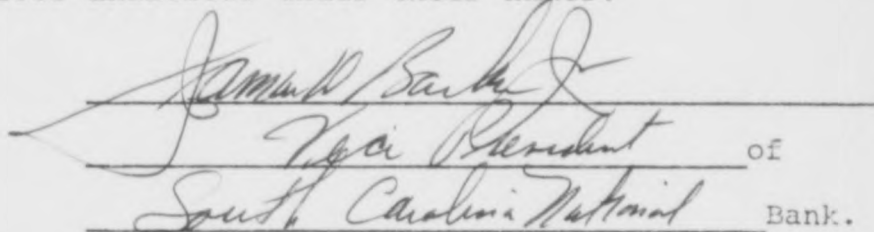 James D Barker Jr
Vice President of
South Carolina National Bank.